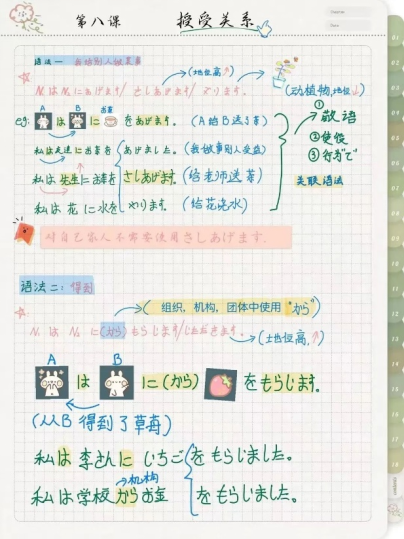 第八课 授受关系
语法一 当给别人做某事
(地位高↑)
N₁はN₂にあげます/さしあげます/やります。 (动植物,地位↓)
eg: A は B に お茶 をあげます。 (A给B送了茶)
私は友達にお茶を あげました。
私は先生にお茶を さしあげます。(给老师送茶)
私は花に水を やります (给花浇水)
①敬语
②使役
③行为"て"
关联语法
对自己家人不需要使用さしあげます.
语法二: 得到
( 组织, 机构, 团体中使用 "から")
N₁は N₂ に(から)もらじます/いただきます.
(地位高,↑)
A B
は に(から) をもらじます.
(从B 得到了草莓)
私は李さんに いちご をもらじました。
机构
私は学校からお金 をもらじました。